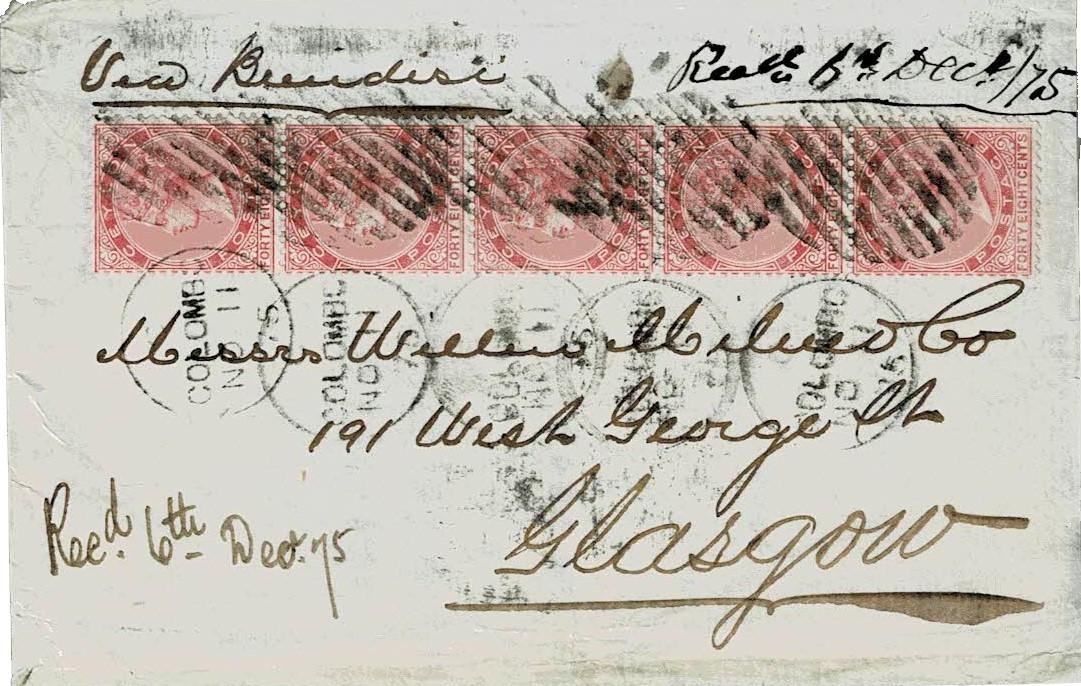 Via Brindisi
Recd 6th Decr/75
CEYLON POSTAGE FORTY EIGHT CENTS
CEYLON POSTAGE FORTY EIGHT CENTS
CEYLON POSTAGE FORTY EIGHT CENTS
CEYLON POSTAGE FORTY EIGHT CENTS
CEYLON POSTAGE FORTY EIGHT CENTS
COLOMBO NO 11 75
COLOMBO NO
COLOMBO NO 11 75
COLOMBO NO
COLOMBO NO 11 75
Messrs Willm Milne & Co
191 West George St
Glasgow
Recd. 6th Decr. 75